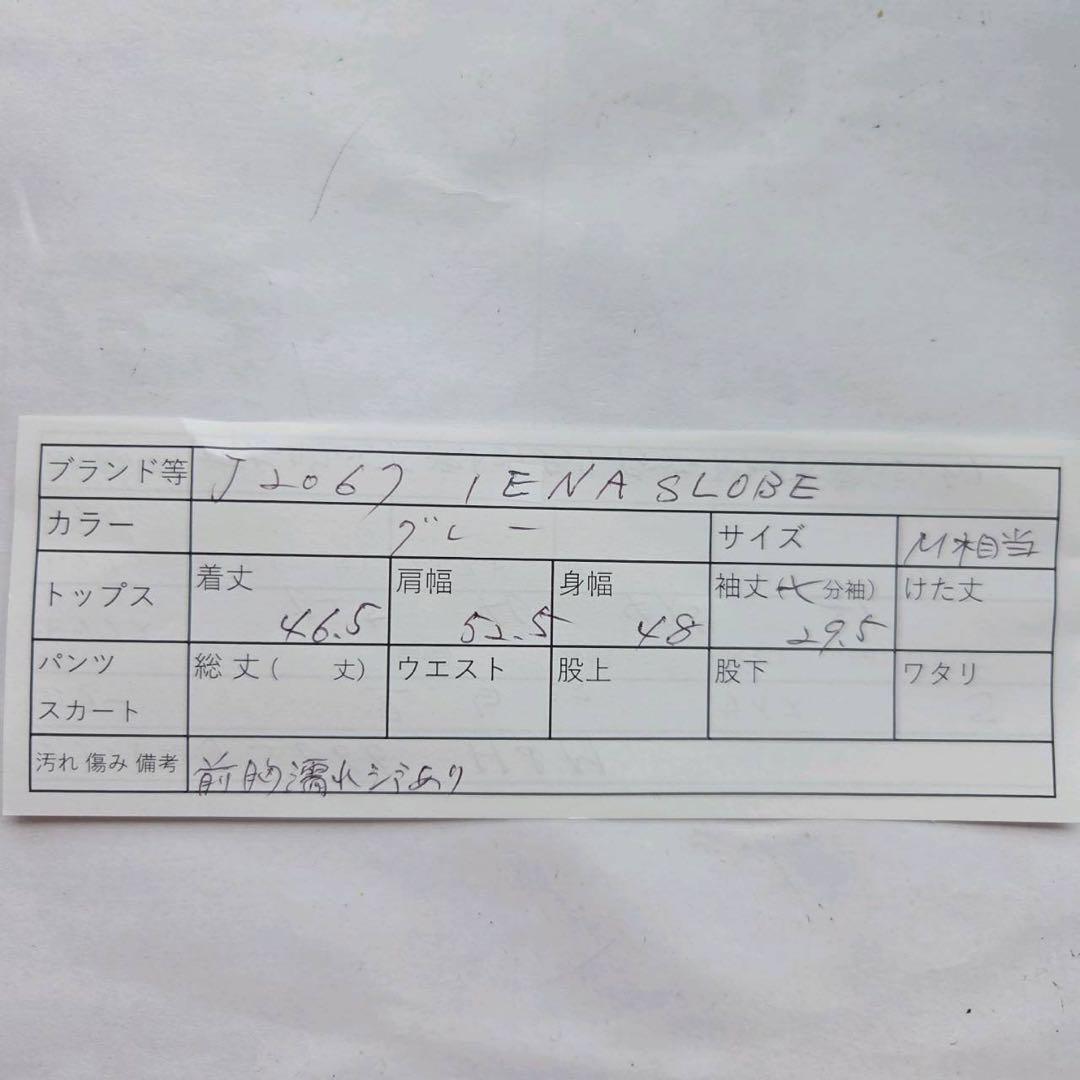 ブランド等 J2067 IENA SLOBE
カラー グレー サイズ M相当
トップス 着丈 46.5 肩幅 52.5 身幅 48 袖丈(七分袖) 29.5 けた丈
パンツ スカート 総丈( 丈) ウエスト 股上 股下 ワタリ
汚れ 傷み 備考 前胸濡れジミあり